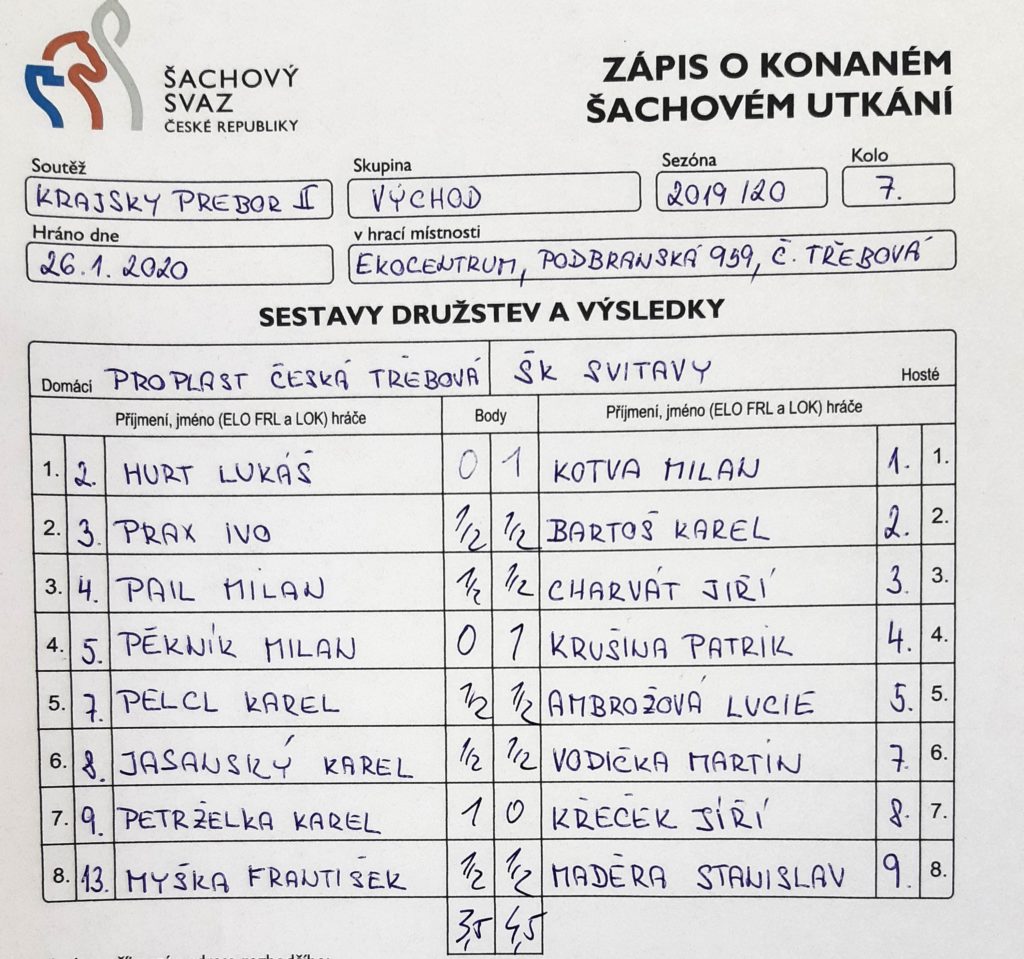 ŠACHOVÝ
SVAZ
ČESKÉ REPUBLIKY
ZÁPIS O KONANÉM
ŠACHOVÉM UTKÁNÍ
Soutěž Skupina Sezóna Kolo
KRAJSKY PREBOR II VÝCHOD 2019/20 7.
Hráno dne v hrací místnosti
26.1.2020 EKOCENTRUM, PODBRANSKÁ 959, Č. TŘEBOVÁ
SESTAVY DRUŽSTEV A VÝSLEDKY
Domácí PROPLAST ČESKÁ TŘEBOVÁ ŠK SVITAVY Hosté
Příjmení, jméno (ELO FRL a LOK) hráče Body Příjmení, jméno (ELO FRL a LOK) hráče
1. 2. HURT LUKÁŠ 0 1 KOTVA MILAN 1. 1.
2. 3. PRAX IVO 1/2 1/2 BARTOŠ KAREL 2. 2.
3. 4. PAIL MILAN 1/2 1/2 CHARVÁT JIŘÍ 3. 3.
4. 5. PĚKNÍK MILAN 0 1 KRUŠINA PATRIK 4. 4.
5. 7. PELCL KAREL 1/2 1/2 AMBROŽOVÁ LUCIE 5. 5.
6. 8. JASANSKÝ KAREL 1/2 1/2 VODIČKA MARTIN 7. 6.
7. 9. PETRŽELKA KAREL 1 0 KŘEČEK JIŘÍ 8. 7.
8. 13. MYŠKA FRANTIŠEK 1/2 1/2 MADĚRA STANISLAV 9. 8.
3,5 4,5